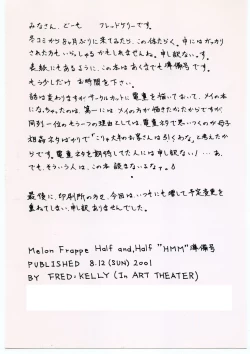 みなさん、どーも フレッドケリーです。
冬コミから8ヶ月ぶりに来てみたら、この体たらく。中にはガッカリ
された方もいらっしゃるかもしれませんね。申し訳ないっす。
表紙にもあるように、この本はあくまでも準備号です。
もう少しだけ お時間を下さい。
話は変わりますがサークルカットに電童を描いておいて、メイの本
になっちゃったのは、第一にはメイの方が描きたかったからですが
同列一位のもう一つの理由としては、電童ネタで思いつくのが母子
相姦ネタばかりで「こりゃ大半のお客さんは引くわな」と思ったか
らです。電童ネタを期待してた人には申し訳ない!…あ、
でも、そういう人は、この本読まないよナ。
最後に、印刷所の方々、今回は、いつにも増して予定変更を
重ねてしまい、申し訳ありませんでした。
Melon Frappe Half and, Half "HMM"準備号
PUBLISHED 8.12 (SUN) 2001
BY FRED・KELLY (In ART THEATER)